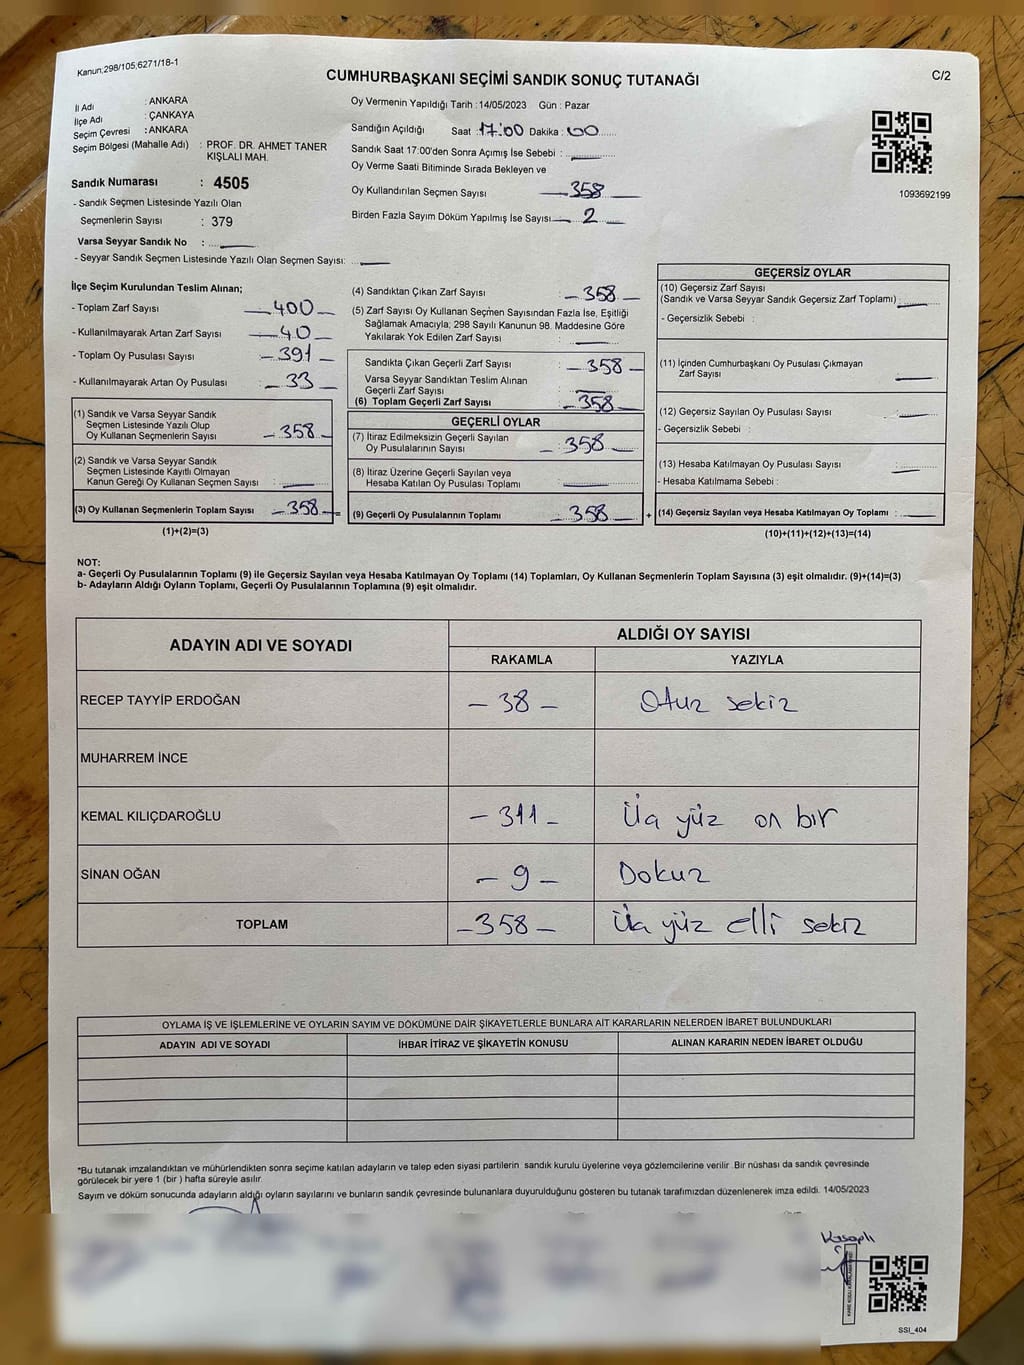 Kanun;298/105;6271/18-1
CUMHURBAŞKANI SEÇİMİ SANDIK SONUÇ TUTANAĞI
C/2
İl Adı : ANKARA
İlçe Adı : ÇANKAYA
Seçim Çevresi : ANKARA
Seçim Bölgesi (Mahalle Adı) : PROF. DR. AHMET TANER
KIŞLALI MAH.
Sandık Numarası : 4505
- Sandık Seçmen Listesinde Yazılı Olan
Seçmenlerin Sayısı : 379
Varsa Seyyar Sandık No :
- Seyyar Sandık Seçmen Listesinde Yazılı Olan Seçmen Sayısı:
Oy Vermenin Yapıldığı Tarih :14/05/2023 Gün : Pazar
Sandığın Açıldığı Saat :17:00 Dakika : 00
Sandık Saat 17:00'den Sonra Açımış İse Sebebi :
Oy Verme Saati Bitiminde Sırada Bekleyen ve
Oy Kullandırılan Seçmen Sayısı 358
Birden Fazla Sayım Döküm Yapılmış İse Sayısı 2
1093692199
İlçe Seçim Kurulundan Teslim Alınan;
- Toplam Zarf Sayısı 400
- Kullanılmayarak Artan Zarf Sayısı 40
- Toplam Oy Pusulası Sayısı - 391 -
- Kullanılmayarak Artan Oy Pusulası : - 33 -
(1) Sandık ve Varsa Seyyar Sandık
Seçmen Listesinde Yazılı Olup
Oy Kullanan Seçmenlerin Sayısı - 358 -
(2) Sandık ve Varsa Seyyar Sandık
Seçmen Listesinde Kayıtlı Olmayan
Kanun Gereği Oy Kullanan Seçmen Sayısı :
(3) Oy Kullanan Seçmenlerin Toplam Sayısı - 358 - =
(1)+(2)=(3)
(4) Sandıktan Çıkan Zarf Sayısı : - 358 -
(5) Zarf Sayısı Oy Kullanan Seçmen Sayısından Fazla İse, Eşitliği
Sağlamak Amacıyla; 298 Sayılı Kanunun 98. Maddesine Göre
Yakılarak Yok Edilen Zarf Sayısı :
Sandıkta Çıkan Geçerli Zarf Sayısı : - 358 -
Varsa Seyyar Sandıktan Teslim Alınan
Geçerli Zarf Sayısı :
(6) Toplam Geçerli Zarf Sayısı : - 358 -
GEÇERLİ OYLAR
(7) İtiraz Edilmeksizin Geçerli Sayılan
Oy Pusulalarının Sayısı : - 358 -
(8) İtiraz Üzerine Geçerli Sayılan veya
Hesaba Katılan Oy Pusulası Toplamı :
(9) Geçerli Oy Pusulalarının Toplamı : - 358 - +
GEÇERSİZ OYLAR
(10) Geçersiz Zarf Sayısı
(Sandık ve Varsa Seyyar Sandık Geçersiz Zarf Toplamı) :
- Geçersizlik Sebebi :
(11) İçinden Cumhurbaşkanı Oy Pusulası Çıkmayan
Zarf Sayısı :
(12) Geçersiz Sayılan Oy Pusulası Sayısı :
- Geçersizlik Sebebi :
(13) Hesaba Katılmayan Oy Pusulası Sayısı :
- Hesaba Katılmama Sebebi :
(14) Geçersiz Sayılan veya Hesaba Katılmayan Oy Toplamı :
(10)+(11)+(12)+(13)=(14)
NOT:
a- Geçerli Oy Pusulalarının Toplamı (9) ile Geçersiz Sayılan veya Hesaba Katılmayan Oy Toplamı (14) Toplamları, Oy Kullanan Seçmenlerin Toplam Sayısına (3) eşit olmalıdır. (9)+(14)=(3)
b- Adayların Aldığı Oyların Toplamı, Geçerli Oy Pusulalarının Toplamına (9) eşit olmalıdır.
ADAYIN ADI VE SOYADI ALDIĞI OY SAYISI
RAKAMLA YAZIYLA
RECEP TAYYİP ERDOĞAN - 38 - Otuz sekiz
MUHARREM İNCE
KEMAL KILIÇDAROĞLU - 311 - Üç yüz on bir
SİNAN OĞAN - 9 - Dokuz
TOPLAM - 358 - Üç yüz elli sekiz
OYLAMA İŞ VE İŞLEMLERİNE VE OYLARIN SAYIM VE DÖKÜMÜNE DAİR ŞİKAYETLERLE BUNLARA AİT KARARLARIN NELERDEN İBARET BULUNDUKLARI
ADAYIN ADI VE SOYADI İHBAR İTİRAZ VE ŞİKAYETİN KONUSU ALINAN KARARIN NEDEN İBARET OLDUĞU
*Bu tutanak imzalandıktan ve mühürlendikten sonra seçime katılan adayların ve talep eden siyasi partilerin sandık kurulu üyelerine veya gözlemcilerine verilir. Bir nüshası da sandık çevresinde
görülecek bir yere 1 (bir ) hafta süreyle asılır.
Sayım ve döküm sonucunda adayların aldığı oyların sayılarını ve bunların sandık çevresinde bulunanlara duyurulduğunu gösteren bu tutanak tarafımızdan düzenlenerek imza edildi. 14/05/2023
Kasaplı
SSI_404